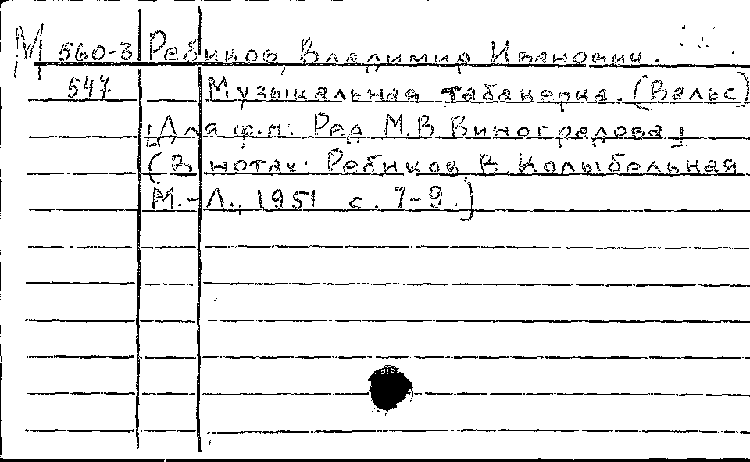 М 560-3 Ребиков, Владимир Иванович.
547 Музыкальная табакерка. (Вальс)
[Для ф.п. Ред М.В Виноградова]
(В нотах: Ребиков В Колыбельная
М.-Л., 1951 с. 7-9.]